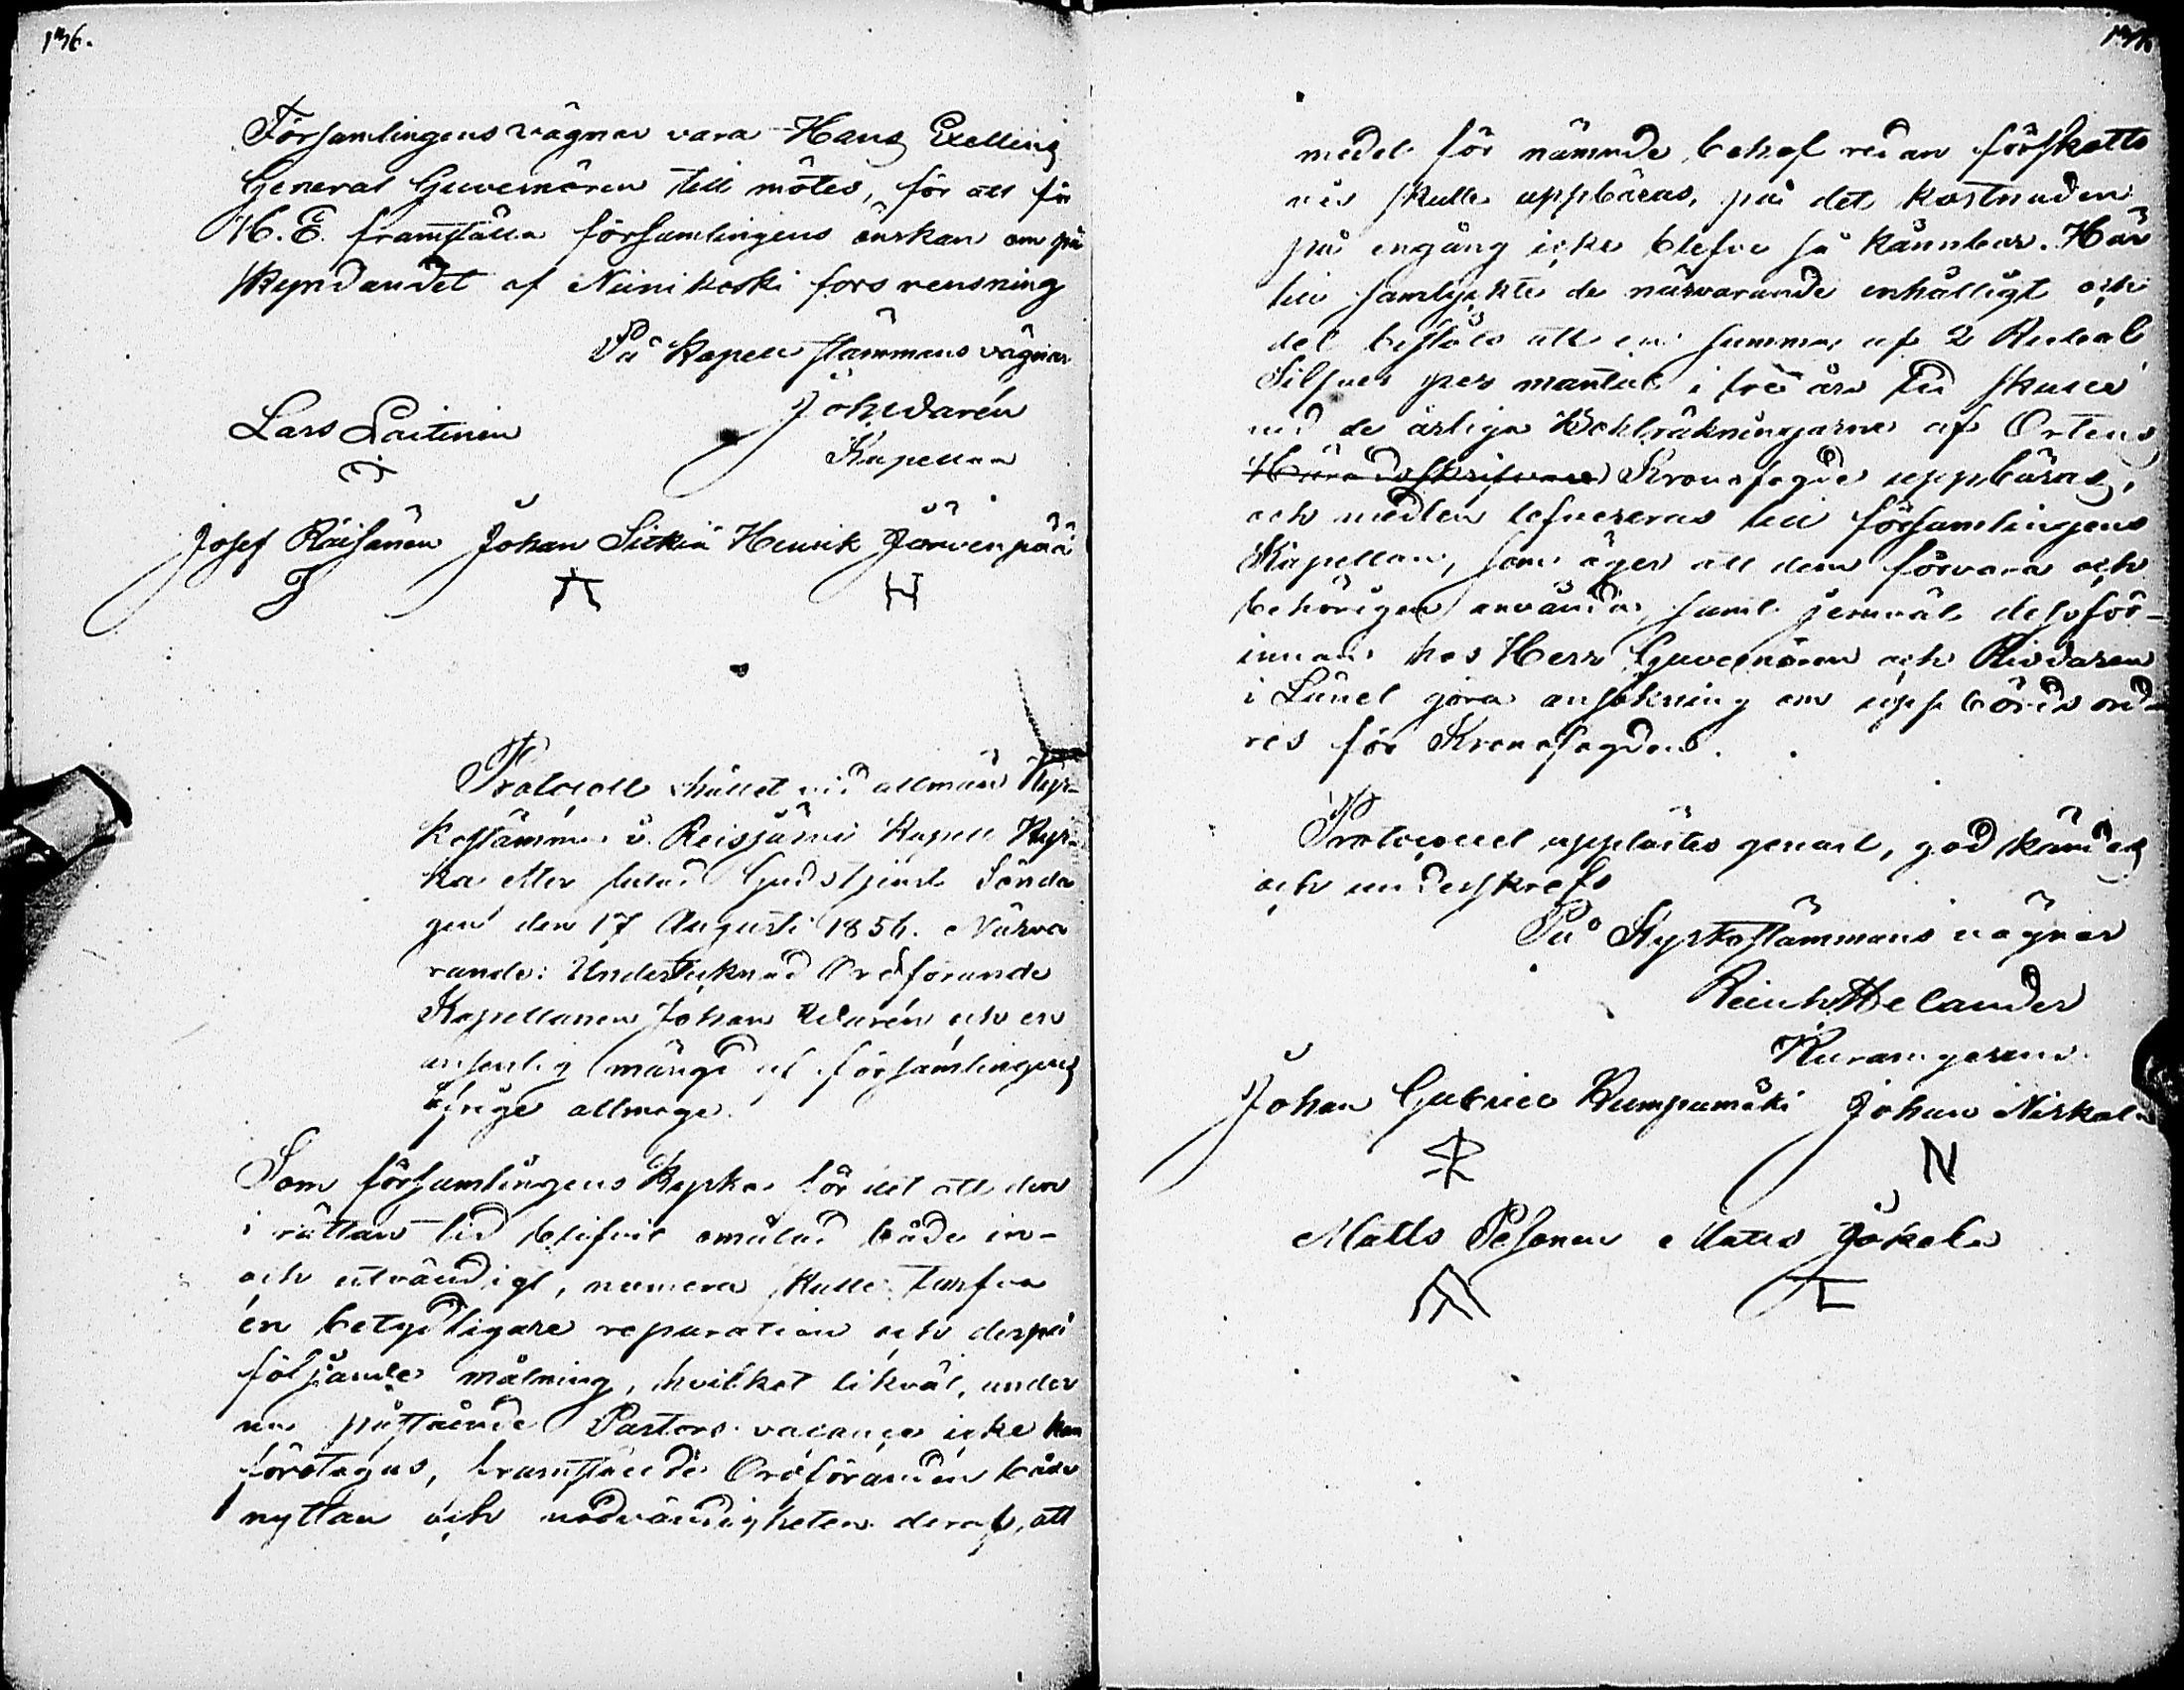 136.
Församlingens vägnar vara Hans Exellens
General Guvernören till mötes, för att för
H. E. framställa församlingens önskan om på
skyndandet af Niinikoski fors rensning
På Kapell stämmans vägnar
Joh Warén
Kapellan
Lars Laitinen
Josef Räisänen Johan Sirkiä Henrik Järvenpää
Protocoll hållet vid allmän Kyr-
kostämma i Reisjärvi Kapell Kyr-
ka efter slutad Gudstjenst Sönda
gen den 17 Augusti 1856. Närva
rande: Undertecknad Ordförande
Kapellanen Johan Warén och en
ansenlig mängd af församlingens
öfrige allmoge.
Som församlingens Kyrka för det att den
i rättan tid blifvit omålad både in-
och utvändigt, numera skulle tarfva
en betydligare reparation och derpå
följande målning, hvilket likväl, under
nu påstående Pastors vacance icke kan
företagas, framställde Ordföranden både
nyttan och nödvändigheten deraf, att
medel för nämnde behof redan förskotts
vis skulle uppbäras, på det kostnaden
på engång icke blefve så kännbar. Här
till samtyckte de närvarande enhälligt och
det beslöts att en summa af 2 Rubel
Silfver per mantal i tre års tid skulle
vid de årliga Boklräkningarne af Ortens
Häradsskrifvare Kronofogde uppbäras,
och medlen lefvereras till församlingens
Kapellan, som äger att dem förvara och
behörigen använda, samt jemväl dessför-
innan hos Herr Guvernören och Riddaren
i Länet göra ansökning om uppbörds ord-
res för Kronofogden.
Protocollet upplästes genast, godkändes
och underskrefs
På Kyrkostämmans vägnar
Reinh. Helander
Johan Gabriel Kumpumäki Johan Niskala
Matts Pesonen Matts Jokela